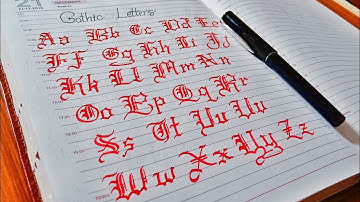 21
DECEMBER
Gothic Letters
Aa Bb Cc Dd Ee
Ff Gg Hh Ii Jj
Kk Ll Mm Nn
Oo Pp Qq Rr
Ss Tt Uu Vv
Ww Xx Yy Zz
Notes